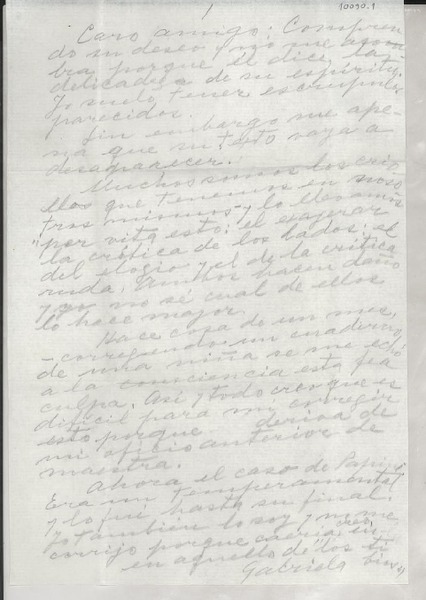 1
10090.1
Caro amigo: Compren-
do su deseo y no me asom-
bra, porque él dice la
delicadeza de su espíritu.
Yo suelo tener escrúpulos
parecidos.
Sin embargo me ape-
na que su texto vaya a
desaparecer.
Muchos somos los crio-
llos que tenemos en noso-
tros mismos y lo llevamos
"per vita" esto: el exagerar
la crítica de los lados: el
del elogio y el de la crítica
ruda. Ambos hacen daño
y yo no sé cual de ellos
lo hace mayor.
Hace cosa de un mes,
corrigiendo un cuaderno
de una niña se me echó
a la consciencia esta fea
culpa. Así y todo creo que es
difícil para mí corregir
esto porque deriva de
mi oficio anterior de
maestra.
Ahora el caso de Papini.
Era un temperamental
y lo fué hasta su final.
Yo también lo soy y no me
corrijo porque caería, creo, en
en aquello de "los ti
bios"
Gabriela